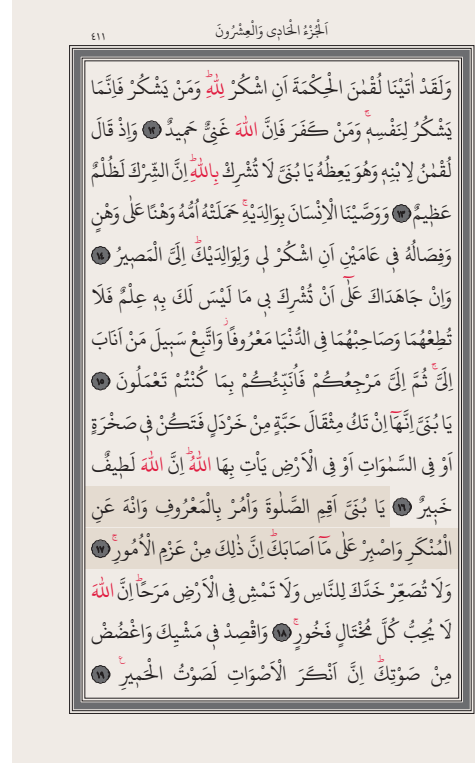 اَلْجُزْءُ الْحَادِى وَالْعِشْرُونَ
٤١١
وَلَقَدْ اٰتَيْنَا لُقْمٰنَ الْحِكْمَةَ اَنِ اشْكُرْ لِلّٰهِۜ وَمَنْ يَشْكُرْ فَاِنَّمَا
يَشْكُرُ لِنَفْسِه۪ۚ وَمَنْ كَفَرَ فَاِنَّ اللّٰهَ غَنِىٌّ حَم۪يدٌ ﴿١٢﴾ وَاِذْ قَالَ
لُقْمٰنُ لِابْنِه۪ وَهُوَ يَعِظُهُ يَا بُنَىَّ لَا تُشْرِكْ بِاللّٰهِۜ اِنَّ الشِّرْكَ لَظُلْمٌ
عَظ۪يمٌ ﴿١٣﴾ وَوَصَّيْنَا الْاِنْسَانَ بِوَالِدَيْهِۚ حَمَلَتْهُ اُمُّهُ وَهْنًا عَلٰى وَهْنٍ
وَفِصَالُهُ ف۪ى عَامَيْنِ اَنِ اشْكُرْ ل۪ى وَلِوَالِدَيْكَۜ اِلَىَّ الْمَص۪يرُ ﴿١٤﴾
وَاِنْ جَاهَدَاكَ عَلٰٓى اَنْ تُشْرِكَ ب۪ى مَا لَيْسَ لَكَ بِه۪ عِلْمٌ فَلَا
تُطِعْهُمَا وَصَاحِبْهُمَا فِى الدُّنْيَا مَعْرُوفًاۘ وَاتَّبِعْ سَب۪يلَ مَنْ اَنَابَ
اِلَىَّۚ ثُمَّ اِلَىَّ مَرْجِعُكُمْ فَاُنَبِّئُكُمْ بِمَا كُنْتُمْ تَعْمَلُونَ ﴿١٥﴾
يَا بُنَىَّ اِنَّهَٓا اِنْ تَكُ مِثْقَالَ حَبَّةٍ مِنْ خَرْدَلٍ فَتَكُنْ ف۪ى صَخْرَةٍ
اَوْ فِى السَّمٰوَاتِ اَوْ فِى الْاَرْضِ يَاْتِ بِهَا اللّٰهُۜ اِنَّ اللّٰهَ لَط۪يفٌ
خَب۪يرٌ ﴿١٦﴾ يَا بُنَىَّ اَقِمِ الصَّلٰوةَ وَاْمُرْ بِالْمَعْرُوفِ وَانْهَ عَنِ
الْمُنْكَرِ وَاصْبِرْ عَلٰى مَٓا اَصَابَكَۜ اِنَّ ذٰلِكَ مِنْ عَزْمِ الْاُمُورِۚ ﴿١٧﴾
وَلَا تُصَعِّرْ خَدَّكَ لِلنَّاسِ وَلَا تَمْشِ فِى الْاَرْضِ مَرَحًاۜ اِنَّ اللّٰهَ
لَا يُحِبُّ كُلَّ مُخْتَالٍ فَخُورٍۚ ﴿١٨﴾ وَاقْصِدْ ف۪ى مَشْيِكَ وَاغْضُضْ
مِنْ صَوْتِكَۜ اِنَّ اَنْكَرَ الْاَصْوَاتِ لَصَوْتُ الْحَم۪يرِ۟ ﴿١٩﴾